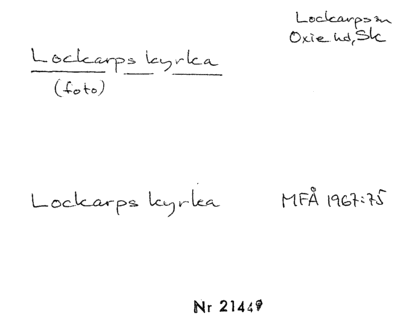 Lockarps sn
Oxie hd, Sk
Lockarps kyrka
(foto)
Lockarps kyrka MFÅ 1967:75
Nr 21449